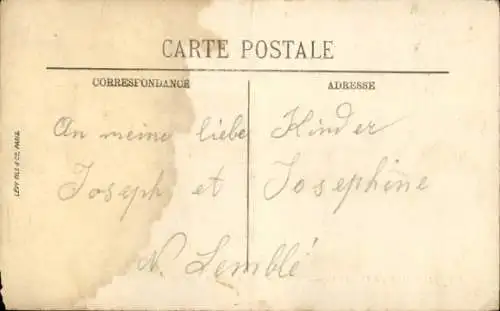 CARTE POSTALE
CORRESPONDANCE ADRESSE
An meine liebe Kinder
Joseph et Josephine
N. Lemblé
LEVY FILS & CO, PARIS